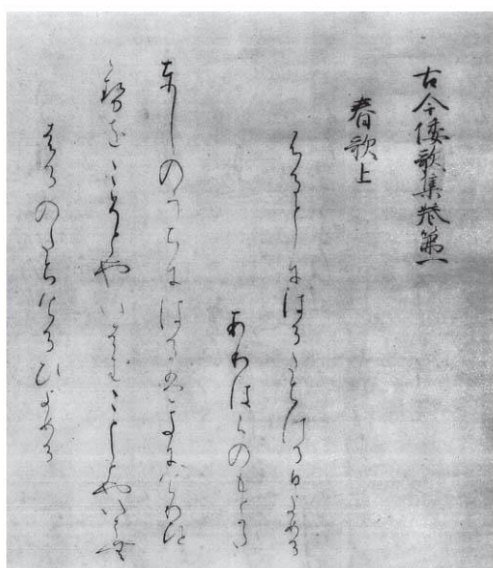 古今倭歌集巻第一
春歌上
ふるとしにはるたちける日よめる
ありはらのもとかた
としのうちにはるはきにけりひとゝ
せをこそとやいはむことしとやいはむ
はるのたちけるひよめる